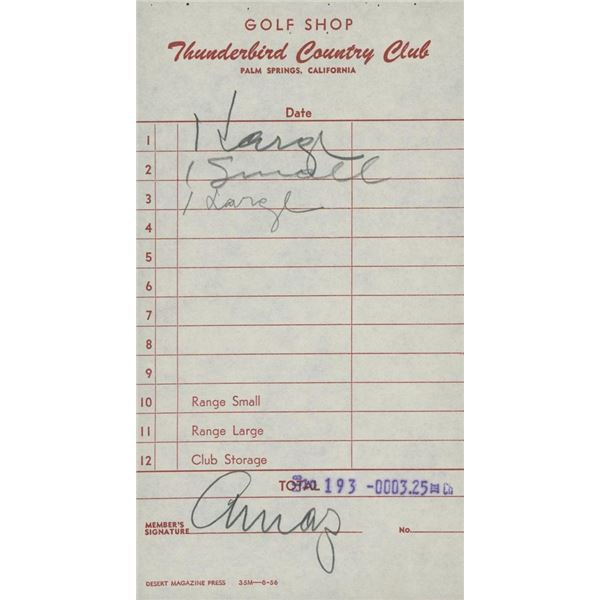 GOLF SHOP
Thunderbird Country Club
PALM SPRINGS, CALIFORNIA
Date
1 1 Large
2 1 Small
3 1 Large
4
5
6
7
8
9
10 Range Small
11 Range Large
12 Club Storage
TOTAL 193 -0003.25
MEMBER'S
SIGNATURE No.
DESERT MAGAZINE PRESS 35M—6-56